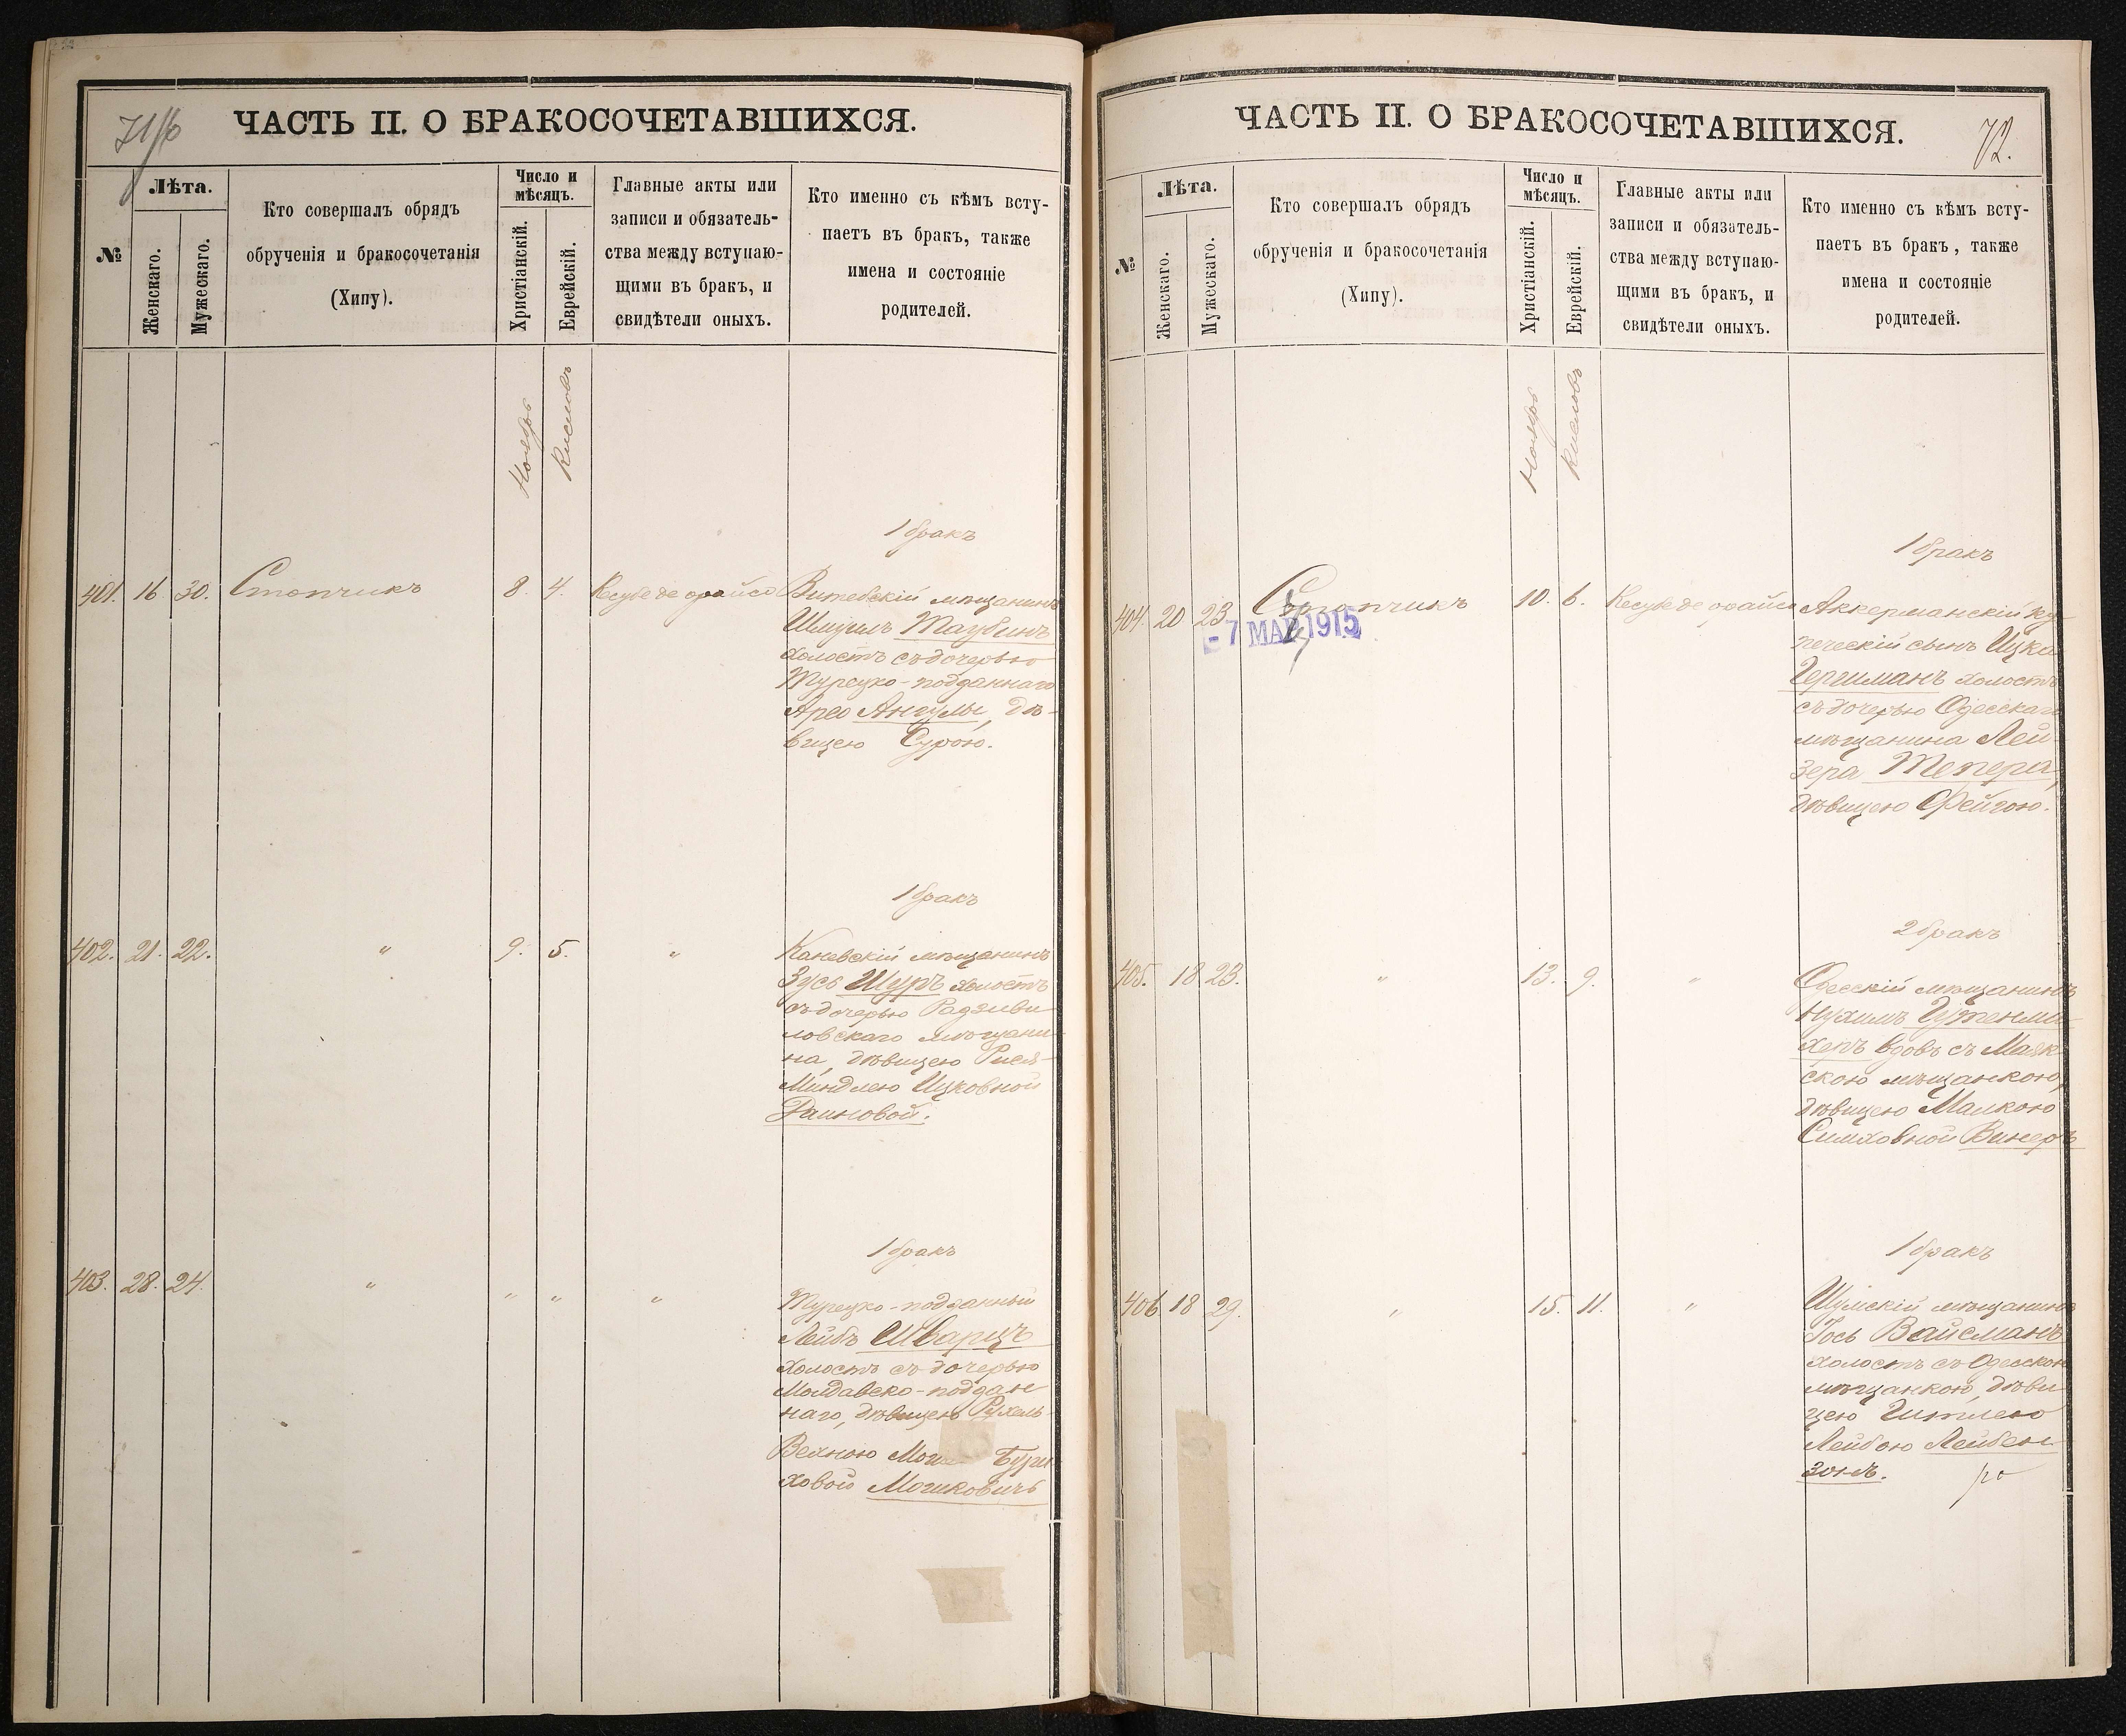 71/б
ЧАСТЬ II. О БРАКОСОЧЕТАВШИХСЯ.
№
Лѣта.
Женскаго.
Мужескаго.
Кто совершалъ обрядъ
обрученія и бракосочетанія
(Хипу).
Число и
мѣсяцъ.
Христіанскій.
Еврейскій.
Главные акты или
записи и обязатель-
ства между вступаю-
щими въ бракъ, и
свидѣтели оныхъ.
Кто именно съ кѣмъ всту-
паетъ въ бракъ, также
имена и состояніе
родителей.
Ноябрь
Кисловъ
1 бракъ
401. 16 30. Стопчикъ 8. 4. Кесубе де орайсо Витебскій мѣщанинъ
Шмуилъ Таубинъ
холостъ съ дочерью
Турецко-подданнаго
Арео Ангулы, дѣ-
вицею Сурою.
1 бракъ
402. 21. 22. " 9. 5. " Каневскій мѣщанинъ
Зусь Шуръ холостъ
съ дочерью Радзиви
ловскаго мѣщани
на, дѣвицею Рися-
Миндлею Ицковной
1 бракъ
403. 28. 24. " " " " Турецко-подданный
Лейбъ Шварцъ
холостъ съ дочерью
Молдавско-поддан
наго, дѣвицею Рухель-
Вехною
ховой Мошковичъ
72.
ЧАСТЬ II. О БРАКОСОЧЕТАВШИХСЯ.
№
Лѣта.
Женскаго.
Мужескаго.
Кто совершалъ обрядъ
обрученія и бракосочетанія
(Хипу).
Число и
мѣсяцъ.
Христіанскій.
Еврейскій.
Главные акты или
записи и обязатель-
ства между вступаю-
щими въ бракъ, и
свидѣтели оныхъ.
Кто именно съ кѣмъ всту-
паетъ въ бракъ, также
имена и состояніе
родителей.
Ноябрь
Кисловъ
1 бракъ
404. 20 23 Стопчикъ 10. 6. Кесубе де орайсо Аккерманскій ку
-7 МАР 1915
печескій сынъ Ицко
Гершманъ холостъ
съ дочерью Одесскаго
мѣщанина Лей
зера Тепера,
дѣвицею Фейгою.
2 бракъ
405. 18 23. " 13. 9. " Одесскій мѣщанинъ
Нухимъ Гутенма
херъ вдовъ съ Маяк
скою мѣщанкою,
дѣвицею Малкою
Симховной Винеръ
1 бракъ
406 18 29. " 15. 11. " Шумскій мѣщанинъ
Гось Вайсманъ
холостъ съ Одесскою
мѣщанкою, дѣви
цею Гитлею
Лейбою Лейбен
зонъ.